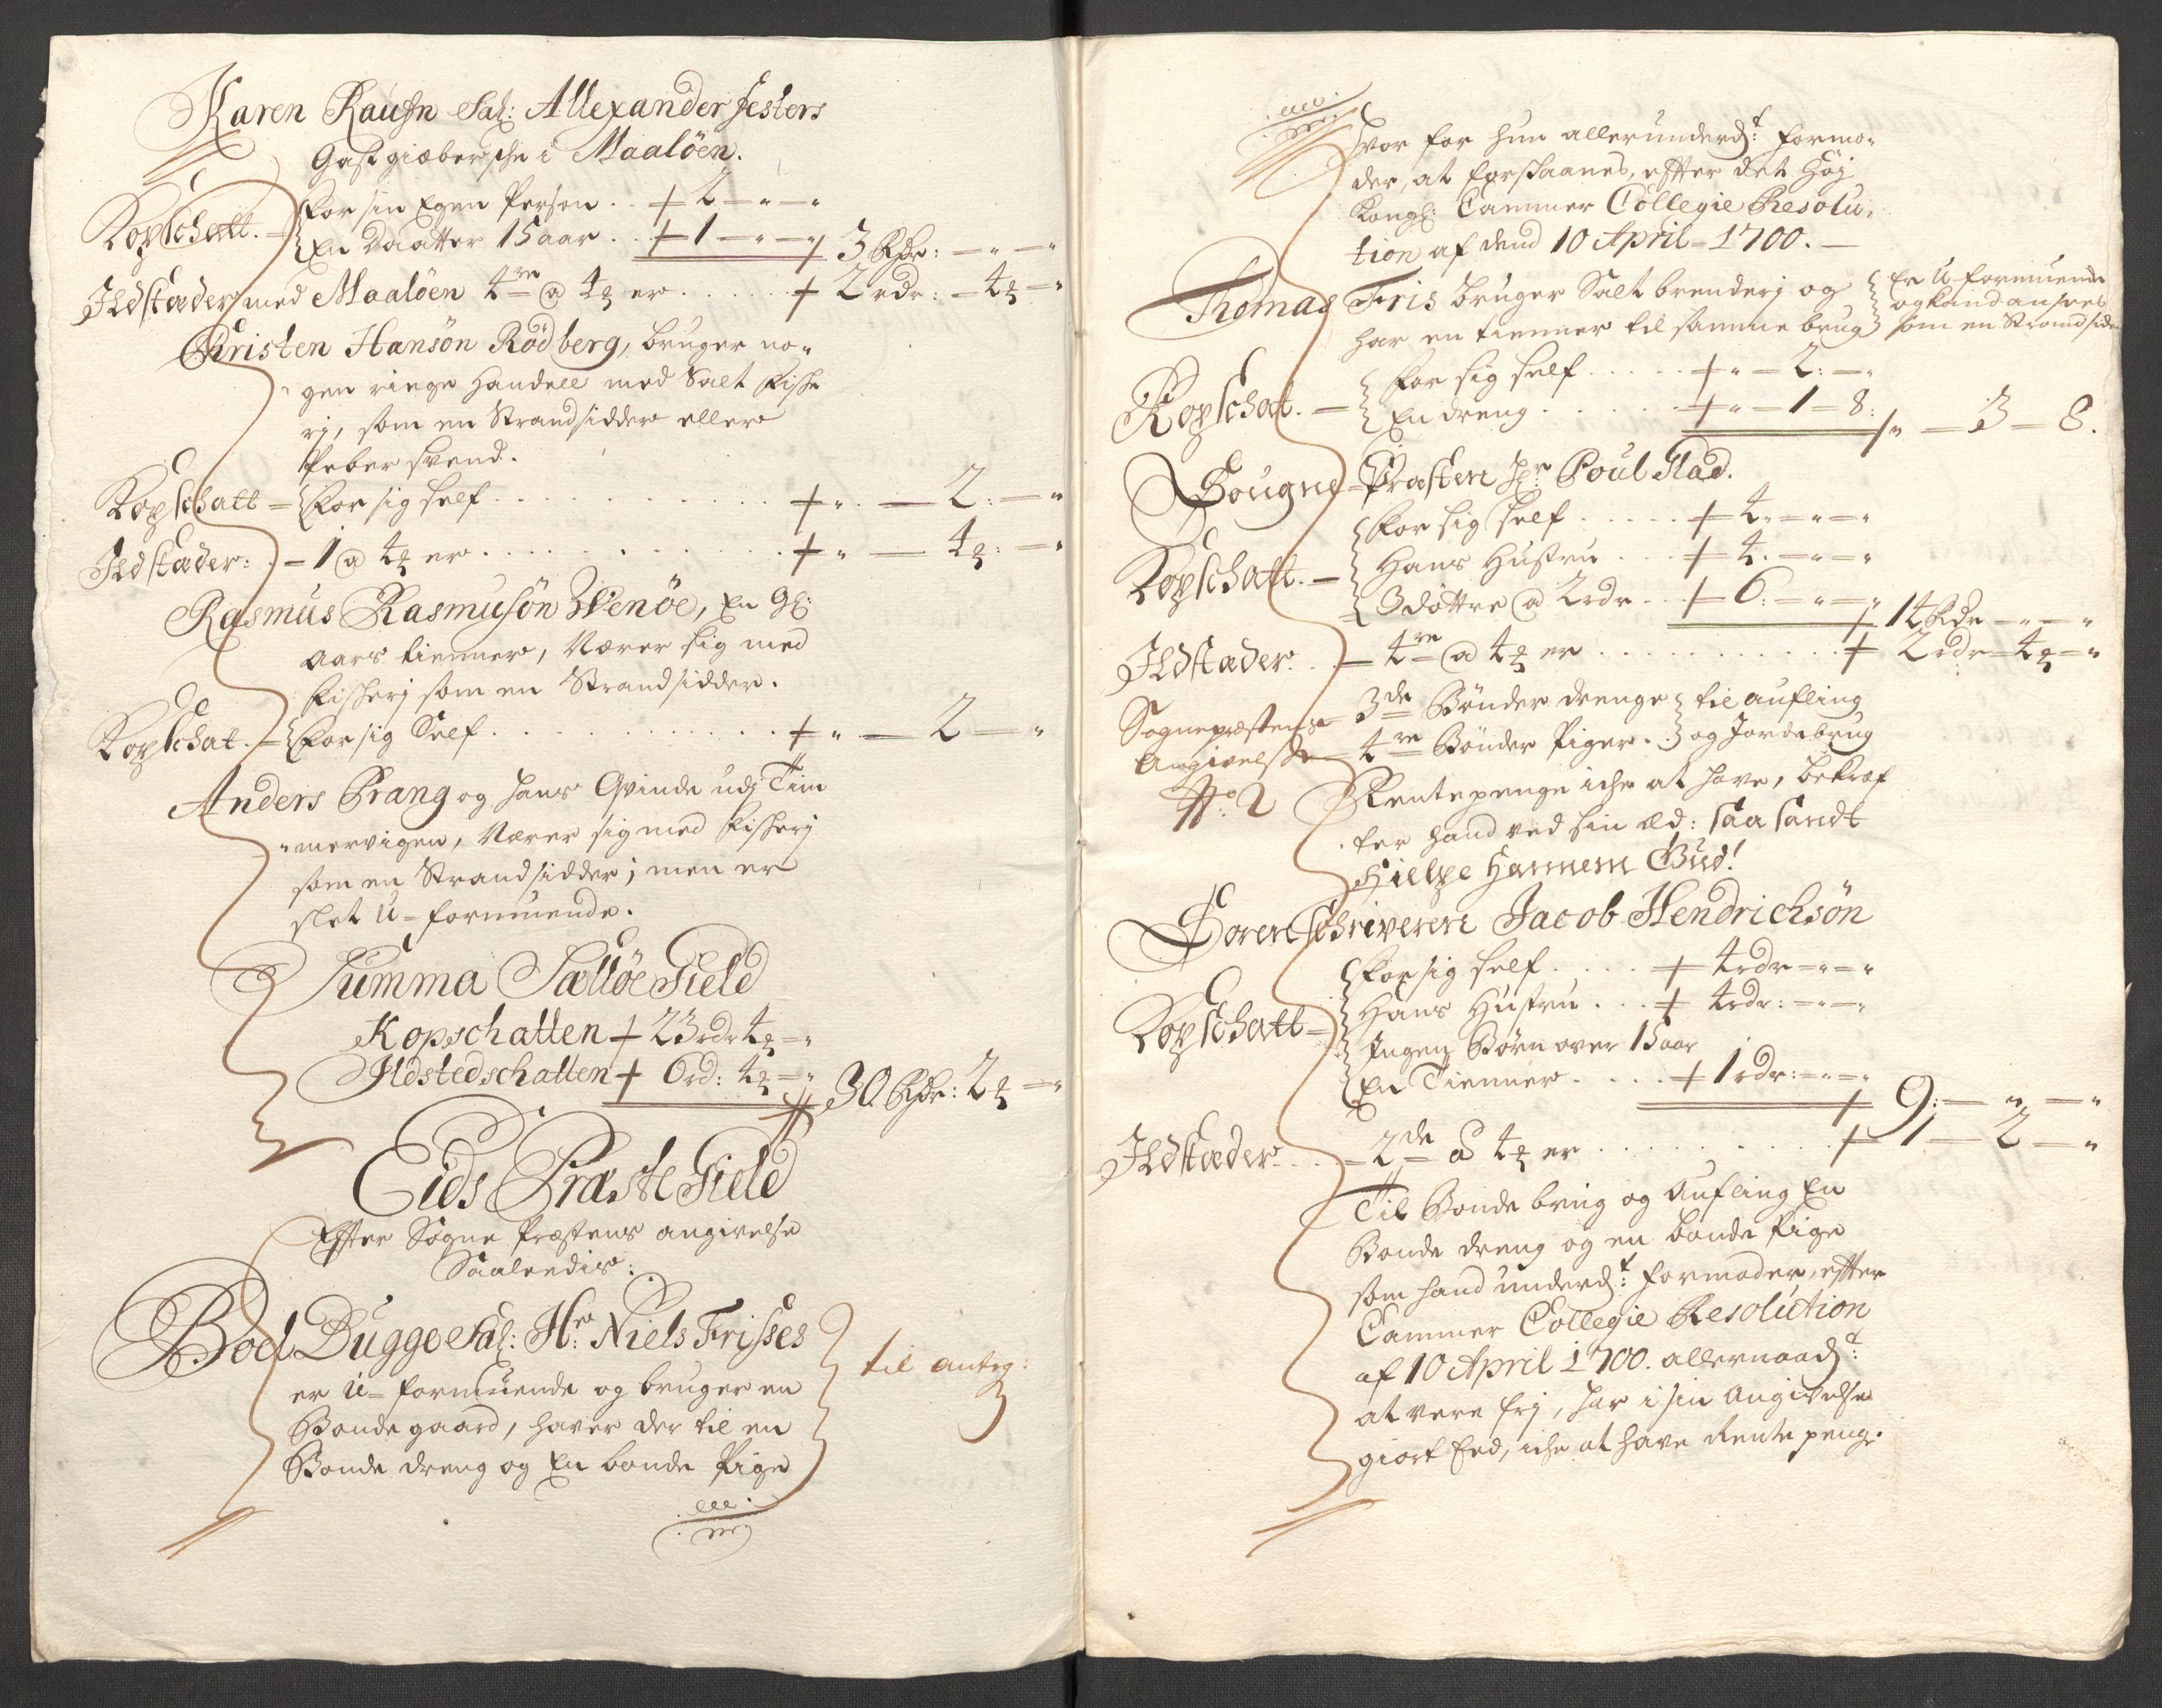 Karen Raufn Sal: Allexander Festers
Gastgiæbersche i Maalöen.
Kopschatt. - for sin Egen Person . + 2 - " - "
En Daatter 15 aar . + 1 - " - " + 3 Rdr: - " - "
Ildstæder med Maalöen 4re @ 4ȝ er . . . . . + 2 rdr: - 4ȝ - "
Christen Hansön Rödberg, bruger no-
gen ringe Handell med Salt Fische
rj, som en Strandsidder eller
Peber svend.
Kopschatt = for sig self . . . . . . . . . + " - 2: - "
Ildstæder: - 1 @ 4ȝ er . . . . . . . . . + " - 4ȝ: - "
Rasmus Rasmusön Wenöe, En gl:
aars tienner, Nærer sig med
Fischerj som en Strandsidder.
Kopschat. - for sig Self . . . . . . . . . + " - 2 - "
Anders Prang og hans Qvinde udj Tim
mervigen, Nærer sig med Fischerj
som en Strandsidder; men er
slet U-formuende.
Summa Sælløe Field
Kopschatten + 23 rdr 4ȝ - "
Ildstedschatten + 6 rd: 4ȝ - " + 30 Rdr: 2ȝ - "
Eids Præste Field
Effter Sogne Præstens angivelse
Saaledis:
Boel Bugge Sal: Hr: Niels Frisses
er U-formuende og bruger en
Bondegaard, haver der til en
Bonde dreng og En bonde Pige
til anteg:
Hvor for hun allerunderd:t formo-
der, at forskaanes, effter det Høj
Kongl: Cammer Collegie Resolu-
tion af dend 10 April 1700. -
Thomas Fris bruger Salt brenderj og
har en tienner til samme brug
Er U-formuende
og kand ansees
som en Strandsidder
Kopschat. - for sig self . . . . . + " - 2: - "
En dreng . . . . . + " - 1 - 8: + " - 3 - 8.
Sougne-Præsten Hr: Poul Glad.
Kopschatt. - for sig self . . . . . + 4. - " - "
Hans Hustru . . . + 4. - " - "
3 döttre @ 2 rdr . . + 6: - " - " + 14 Rdr - " - "
Ildstæder. . . - 4re @ 4ȝ er . . . . . . . . . + 2 rdr - 4ȝ - "
Sognepræstens
Angivelse
No: 2
3de Bönder drenge
4re Bönder Piger . .
til aufling
og Jordebrug
Rentepenge iche at have, bekræf
ter hand ved sin æd: saa sandt
Hielpe Hannem Gud!
Sorenschriveren Jacob Hendrichsön
Kopschatt = for sig self . . . . + 4 rdr - " - "
Hans Hustru . . . + 4 rdr: - " - "
Ingen Börn over 15 aar
En Tienner . . . . + 1 rdr: - " - " + 9: - " - "
Ildstæder. . . . - 2de @ 4ȝ er . . . . . . . . + 1 - 2 - "
Til Bonde brug og Aufling En
Bonde dreng og en bonde Pige
som hand underd:t formoder, effter
Cammer Collegie Resolution
af 10 April 1700. allernaad:t
at vere frj, har i sin Angivelse
giort Eed, iche at have Rente penge.